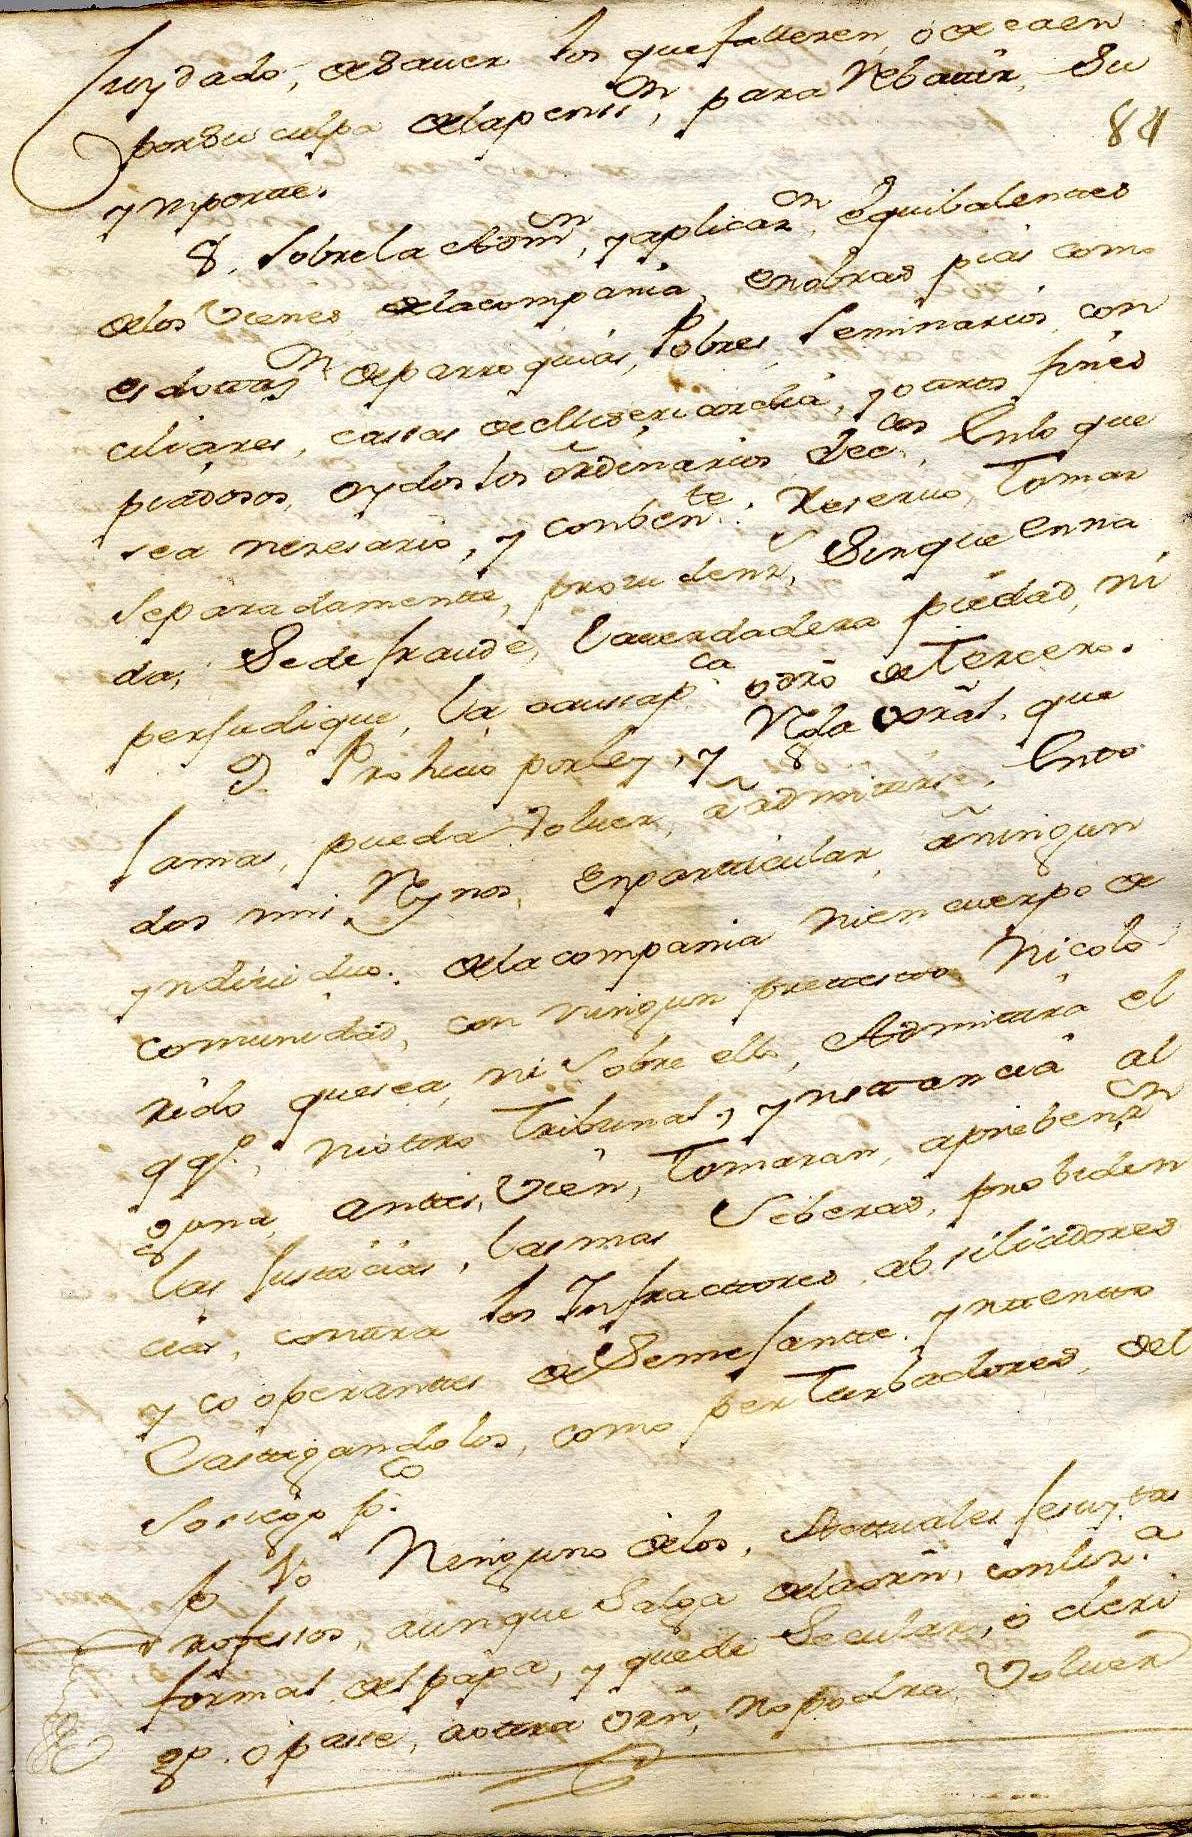 Cuydado, de saver los que falleren, ó decaen
por su culpa de la pens.n, para Rebatir, Su
84
ymporte.
8. Sobre la Adm.n, y aplicaz.n, equibalentes
de los Vienes de la compañia, en obras pias como
es dotaz.n de parroquias, Pobres, Seminarios, con
ciliares, cassas de Misericordia, y otros fines
piadosos, oydos los ordinarios Ecc.cos, En lo que
sea neresario, y conben.te: Reservo, Tomar
separadamente, provudenz.s, Sin que en na
da, Se defraude, la verdadera piedad, ni
perjudique, la caussa p.ca o dro de Tercero.
9. Prohivo por ley, y Regla Gral. que
Jamas, pueda volver, á admitirse, En to
dos mis Rynos, en particular, á ningun
yndividuo. de la compania ni en cuerpo de
comunidad, con ningun pretesto Ni colo
rido que sea, ni Sobre ello, Admitira el
qq.o, ni otro Tribunal, ynstancia al
guna, antes, vien, Tomaran, aprebenz.n
las Justicias, las mas Seberas, probiden
cias, contra los Infractores, absiliadores
y cooperantes de Semejante, yntento
Castigandolos, como perTurbadores, del
Sosiego p.co
10 Ninguno de los, Actuales Jesuytas
Profesos, aunque Salga de la orn, con liz.a
formal, del papa, y quede Secular, ó cleri
go. ó passe, a otra orn, No podra Volver